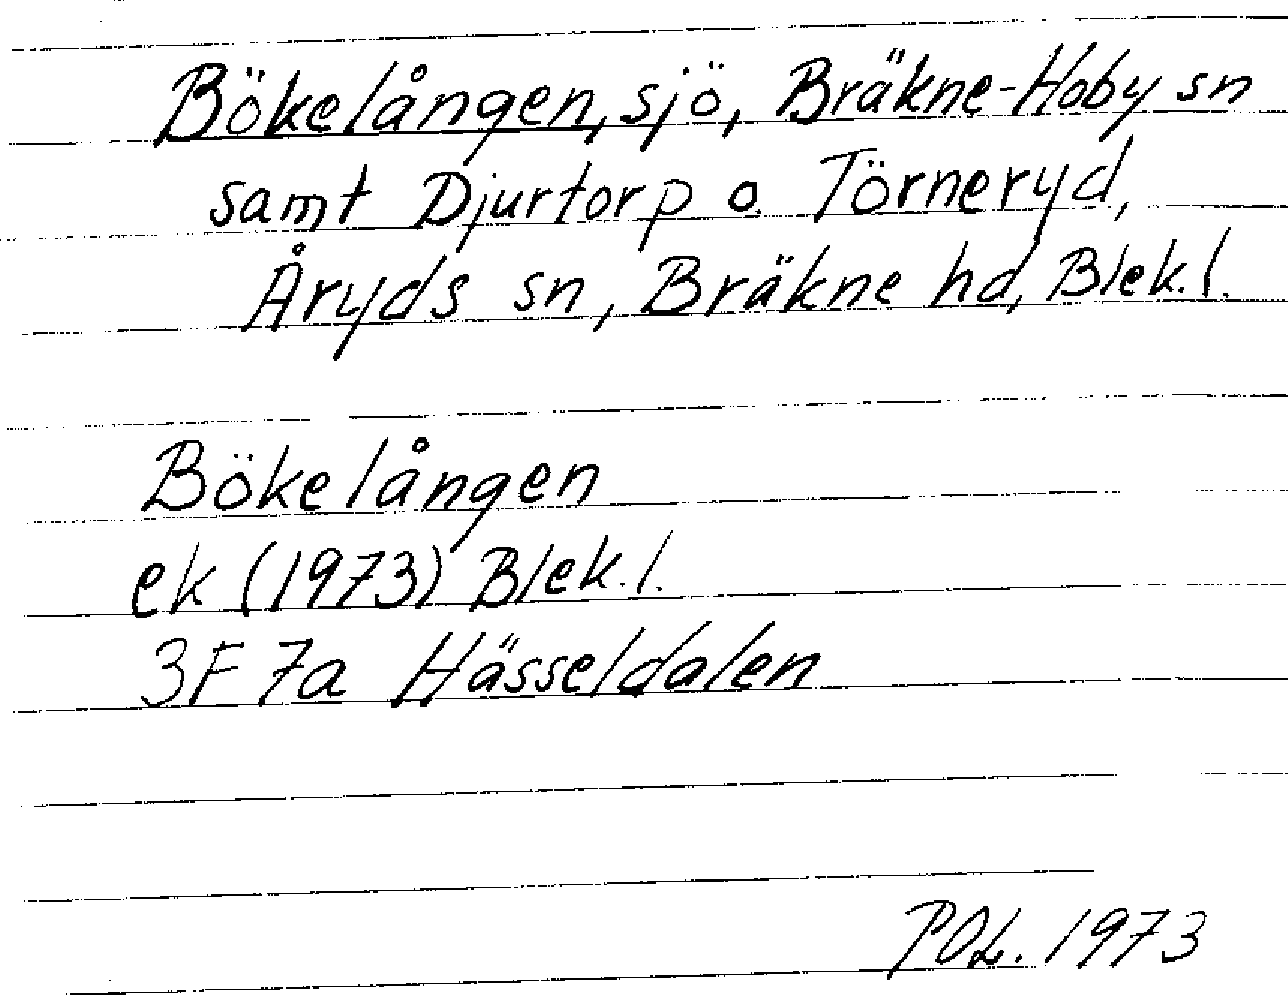 Bökelången, sjö, Bräkne-Hoby sn
samt Djurtorp o. Törneryd,
Åryds sn, Bräkne hd, Blek.l.
Bökelången
ek (1973) Blek.l.
3F 7a Hässeldalen
POL. 1973